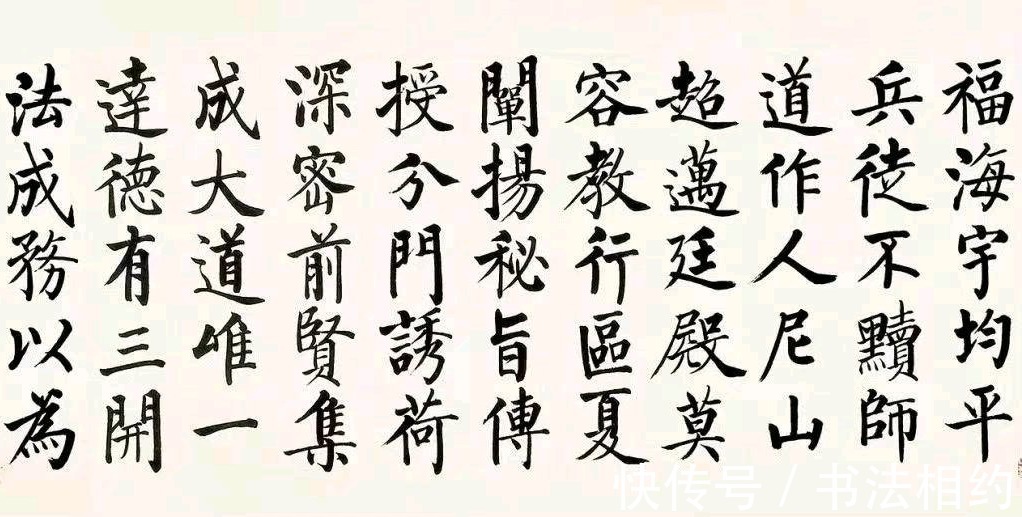 福海宇均平
兵徒不黷師
道作人尼山
超邁廷殿莫
容教行區夏
闡揚秘旨傳
授分門誘荷
深密前賢集
成大道唯一
達德有三開
法成務以為
快传号 / 书法相约